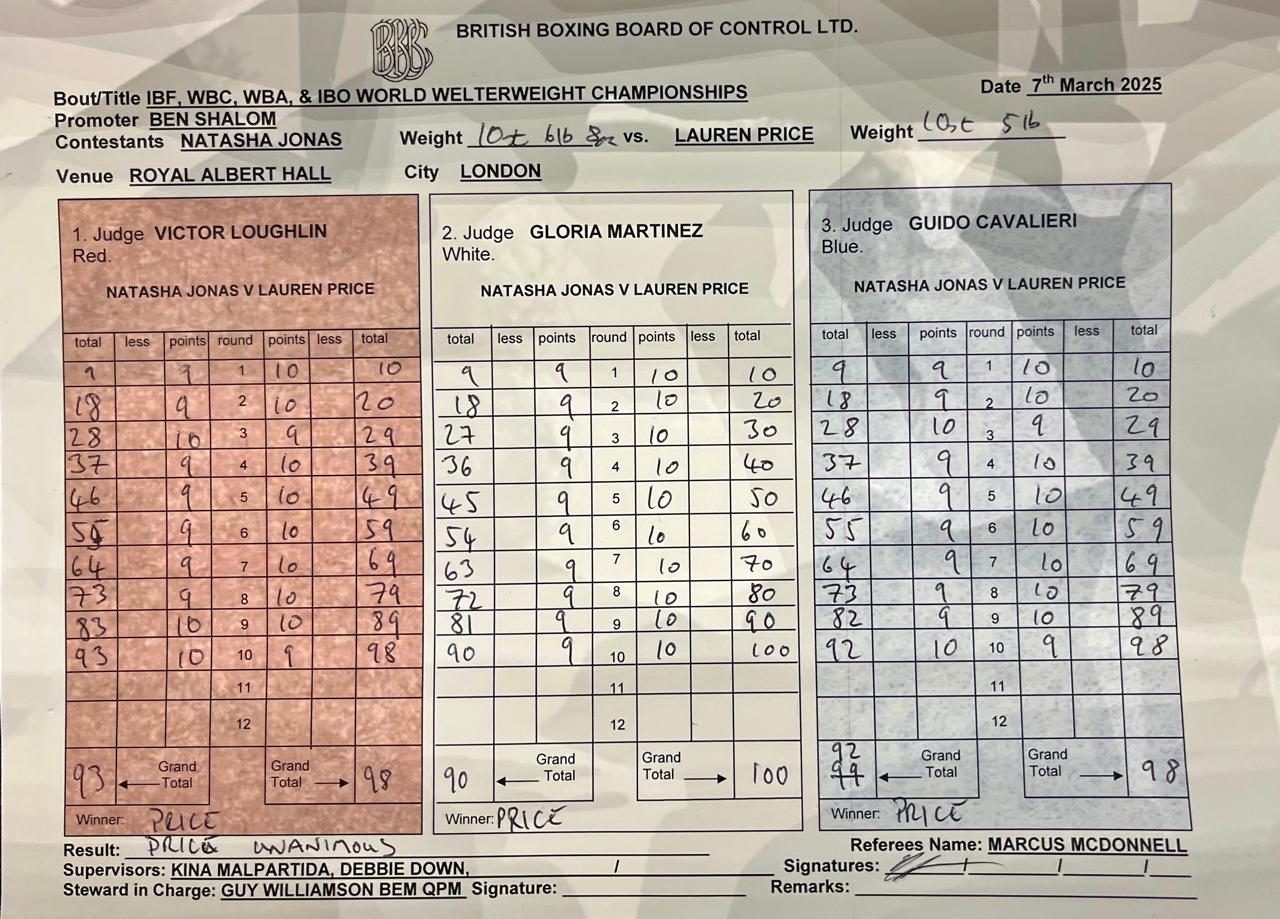 BBBC
BRITISH BOXING BOARD OF CONTROL LTD.
Date 7th March 2025
Bout/Title IBF, WBC, WBA, & IBO WORLD WELTERWEIGHT CHAMPIONSHIPS
Promoter BEN SHALOM
Contestants NATASHA JONAS Weight 10st 6lb 8oz vs. LAUREN PRICE Weight 10st 5lb
Venue ROYAL ALBERT HALL City LONDON
1. Judge VICTOR LOUGHLIN
Red.
NATASHA JONAS V LAUREN PRICE
total less points round points less total
9 9 1 10 10
18 9 2 10 20
28 10 3 9 29
37 9 4 10 39
46 9 5 10 49
55 9 6 10 59
64 9 7 10 69
73 9 8 10 79
83 10 9 10 89
93 10 10 9 98
11
12
93 Grand Total Grand Total 98
Winner: PRICE
2. Judge GLORIA MARTINEZ
White.
NATASHA JONAS V LAUREN PRICE
total less points round points less total
9 9 1 10 10
18 9 2 10 20
27 9 3 10 30
36 9 4 10 40
45 9 5 10 50
54 9 6 10 60
63 9 7 10 70
72 9 8 10 80
81 9 9 10 90
90 9 10 10 100
11
12
90 Grand Total Grand Total 100
Winner: PRICE
3. Judge GUIDO CAVALIERI
Blue.
NATASHA JONAS V LAUREN PRICE
total less points round points less total
9 9 1 10 10
18 9 2 10 20
28 10 3 9 29
37 9 4 10 39
46 9 5 10 49
55 9 6 10 59
64 9 7 10 69
73 9 8 10 79
82 9 9 10 89
92 10 10 9 98
11
12
92
Grand Total Grand Total 98
Winner: PRICE
Result: PRICE UNANIMOUS
Referees Name: MARCUS MCDONNELL
Supervisors: KINA MALPARTIDA, DEBBIE DOWN, / Signatures: / / /
Steward in Charge: GUY WILLIAMSON BEM QPM Signature: Remarks: